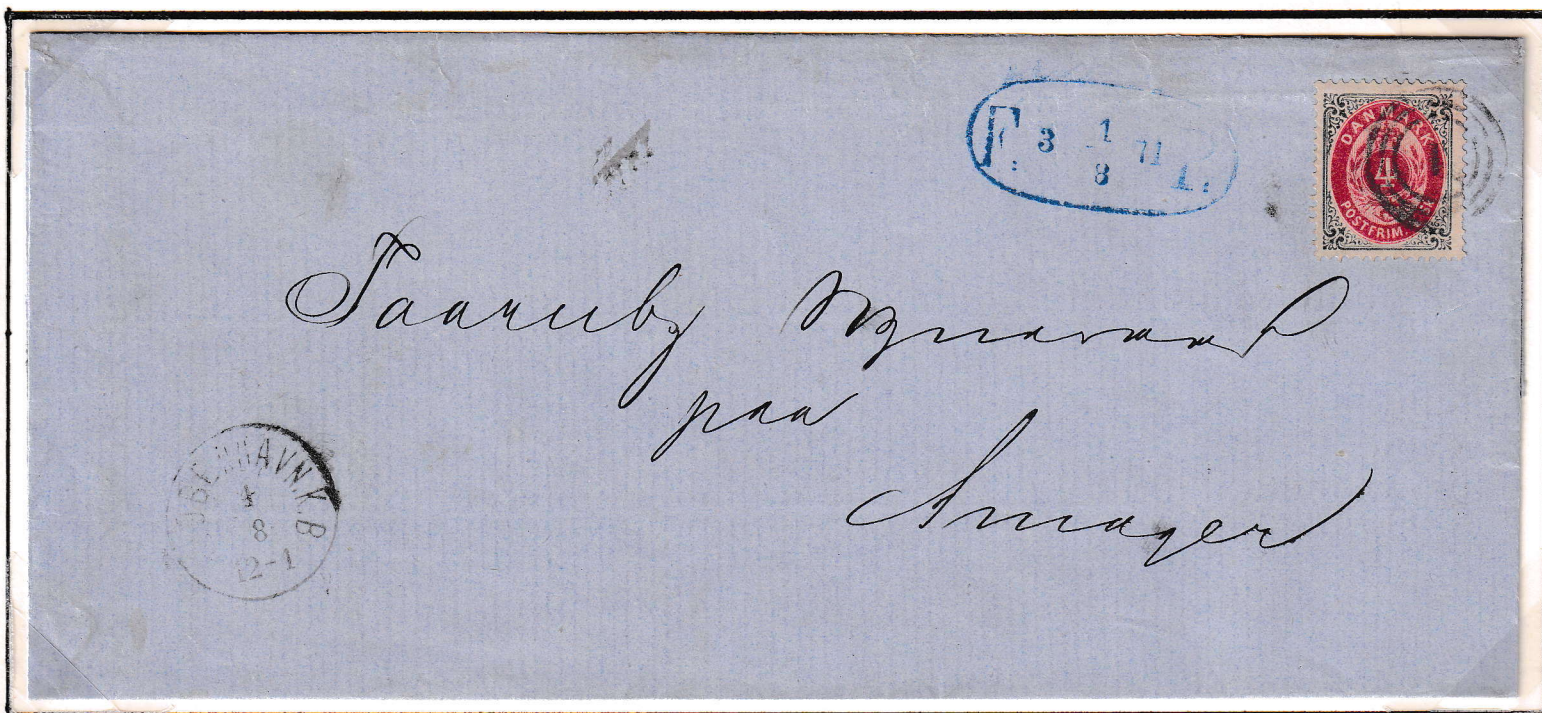 F. 3 1/8 71 P.
DANMARK
4
POSTFRIM.
Taarnby Sogneraad
paa
Amager
KJØBENHAVN.K.B
8
12-1